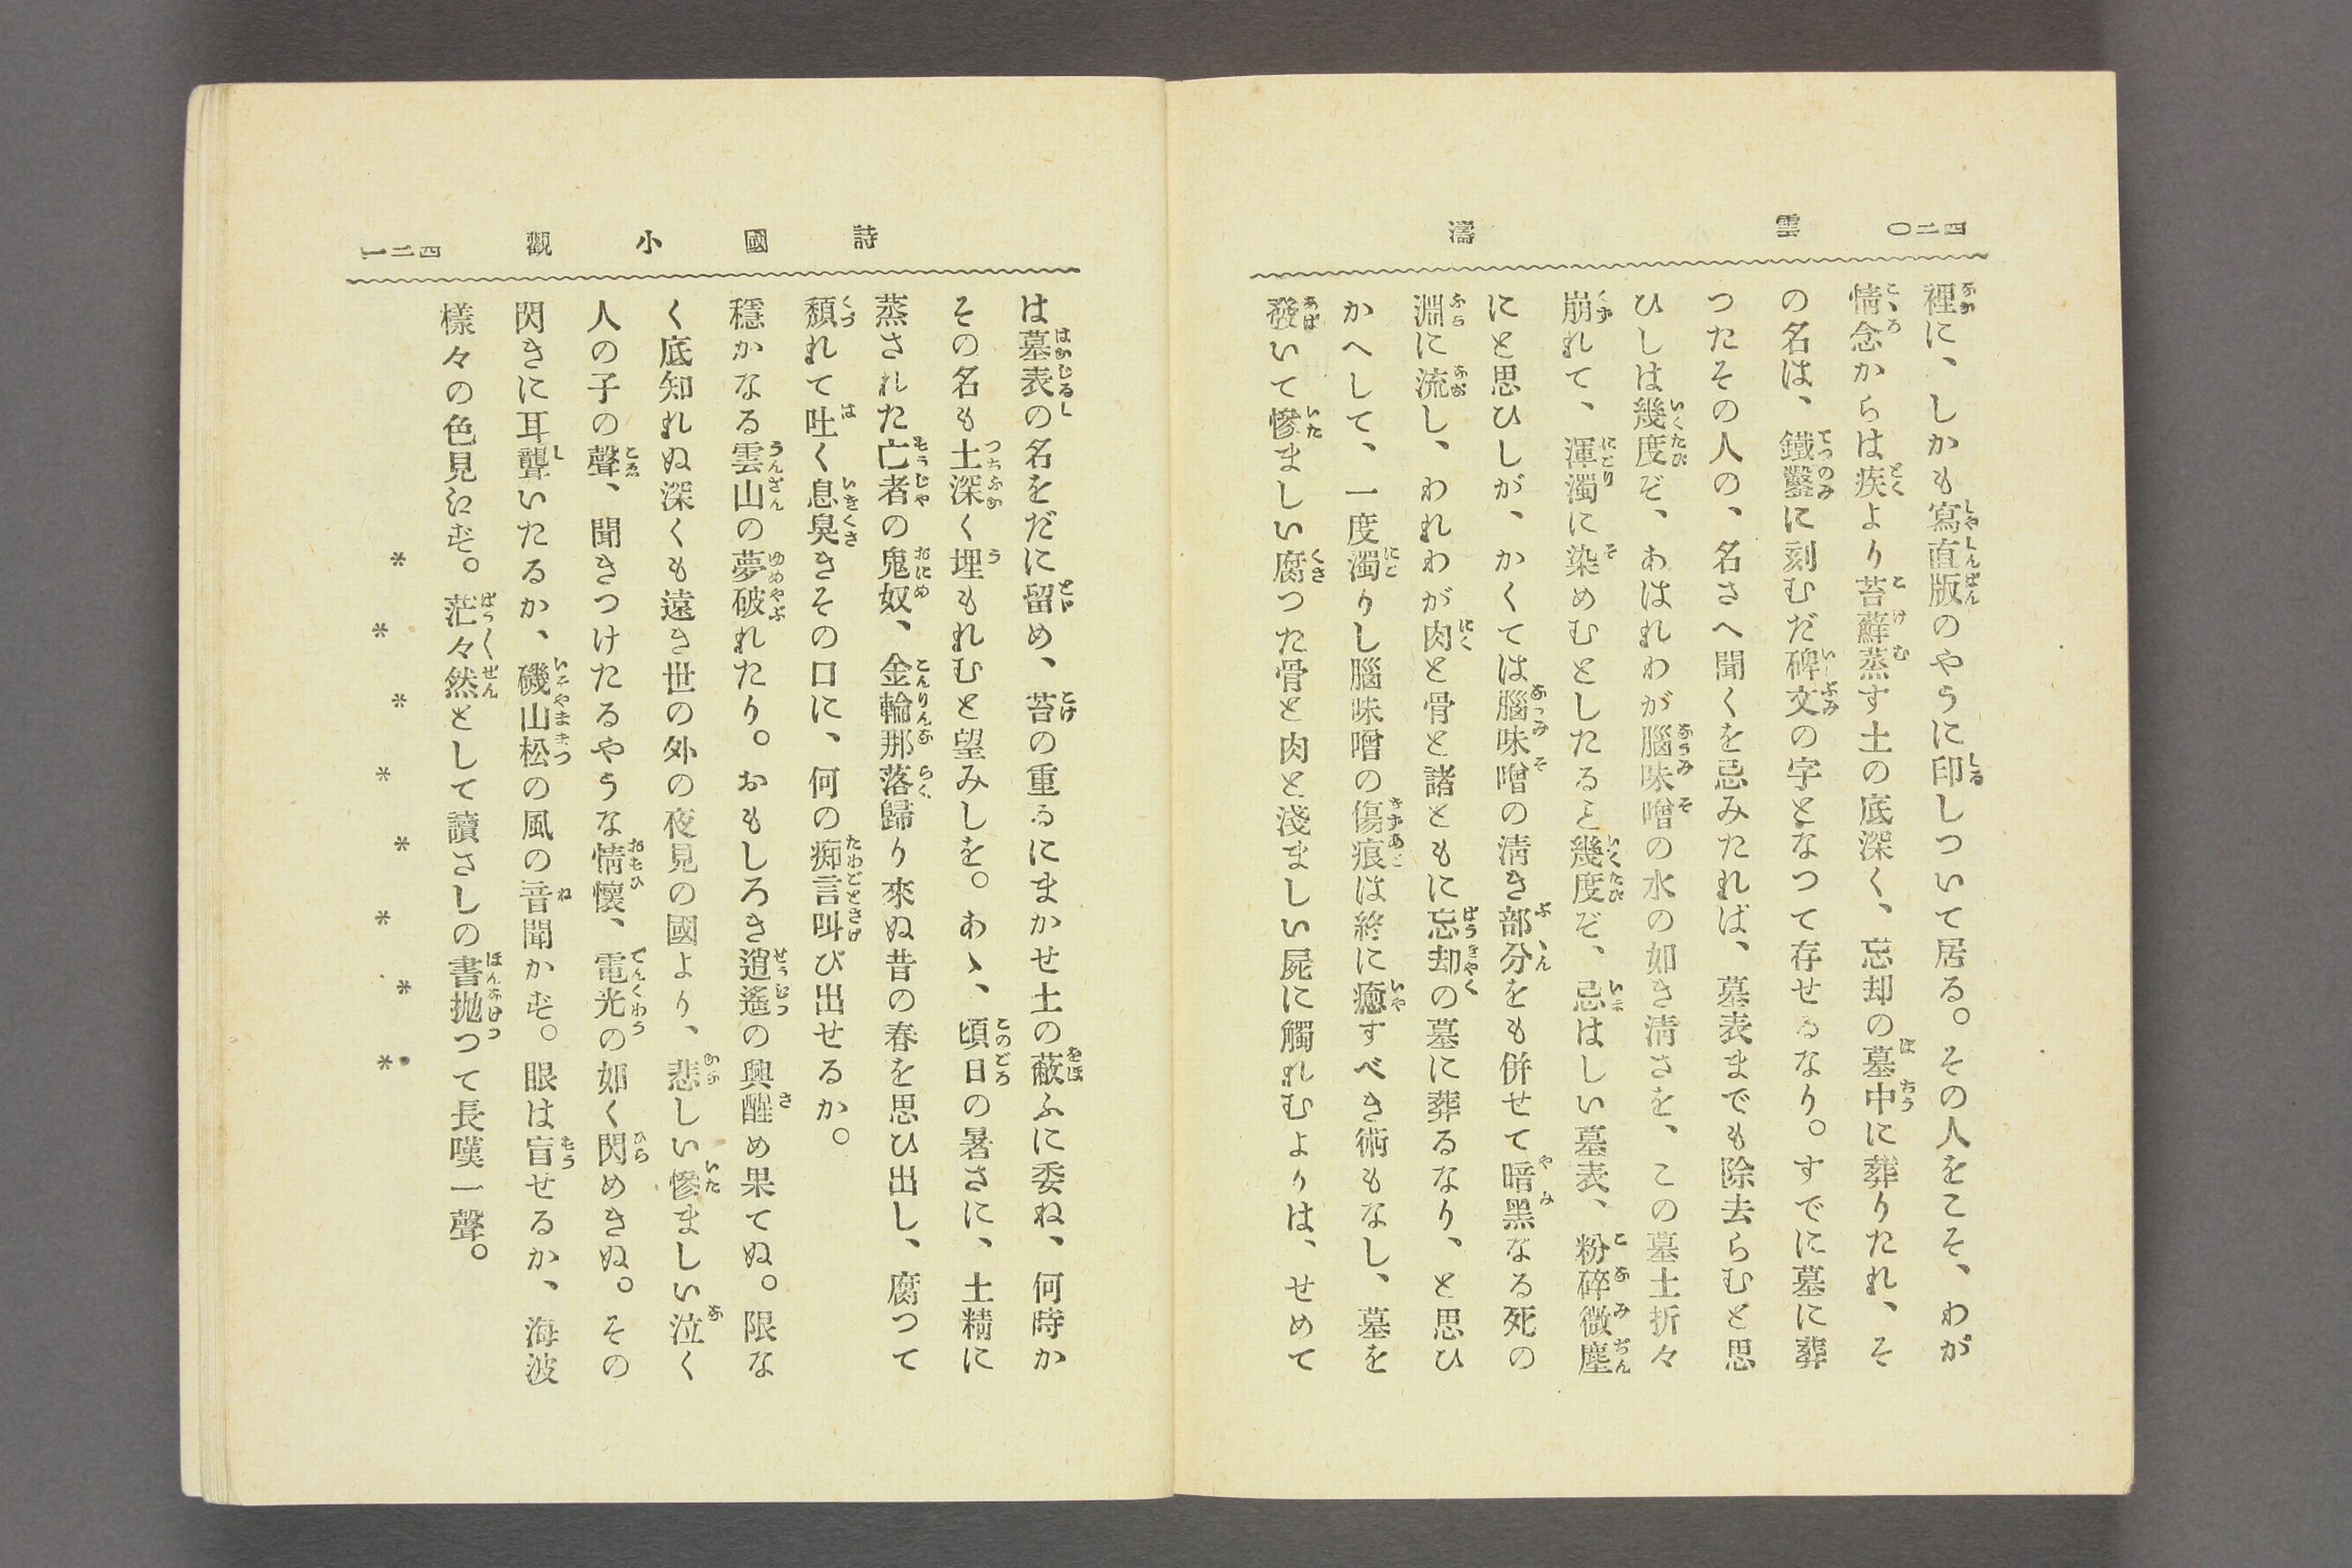 四二〇 雲濤
裡に、しかも寫眞版のやうに印しついて居る。その人をこそ、わが
情念からは疾より苔蘚蒸す土の底深く、忘却の墓中に葬りたれ、そ
の名は、鐵鑿に刻むだ碑文の字となつて存せるなり。すでに墓に葬
つたその人の、名さへ聞くを忌みたれば、墓表までも除去らむと思
ひしは幾度ぞ、あはれわが腦味噌の水の如き淸さを、この墓土折々
崩れて、渾濁に染めむとしたること幾度ぞ、忌はしい墓表、粉碎微塵
にと思ひしが、かくては腦味噌の淸き部分をも併せて暗黑なる死の
淵に流し、われわが肉と骨と諸ともに忘却の墓に葬るなり、と思ひ
かへして、一度濁りし腦味噌の傷痕は終に癒すべき術もなし、墓を
發いて慘ましい腐つた骨と肉と淺ましい屍に觸れむよりは、せめて
詩國小觀 四二一
は墓表の名をだに留め、苔の重るにまかせ土の蔽ふに委ね、何時か
その名も土深く埋もれむと望みしを。あゝ、頃日の暑さに、土精に
蒸された亡者の鬼奴、金輪那落歸り來ぬ昔の春を思ひ出し、腐つて
頽れて吐く息臭きその口に、何の痴言叫び出せるか。
穩かなる雲山の夢破れたり。おもしろき逍遙の興醒め果てぬ。限な
く底知れぬ深くも遠き世の外の夜見の國より、悲しい慘ましい泣く
人の子の聲、聞きつけたるやうな情懷、電光の如く閃めきぬ。その
閃きに耳聾いたるか、磯山松の風の音聞かず。眼は盲せるか、海波
樣々の色見えず。茫々然として讀さしの書抛つて長嘆一聲。
＊　＊　＊　＊　＊　＊　＊　＊